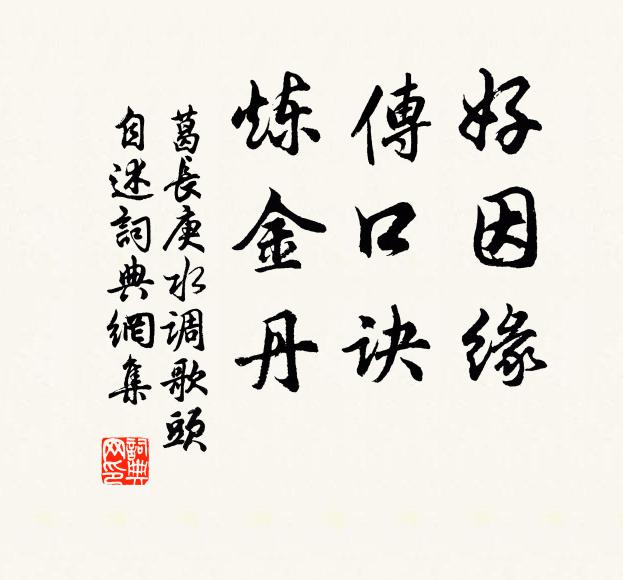 好因缘
傳口诀
炼金丹
葛長庚水调歌頭
自述詞典網集
詞典网印